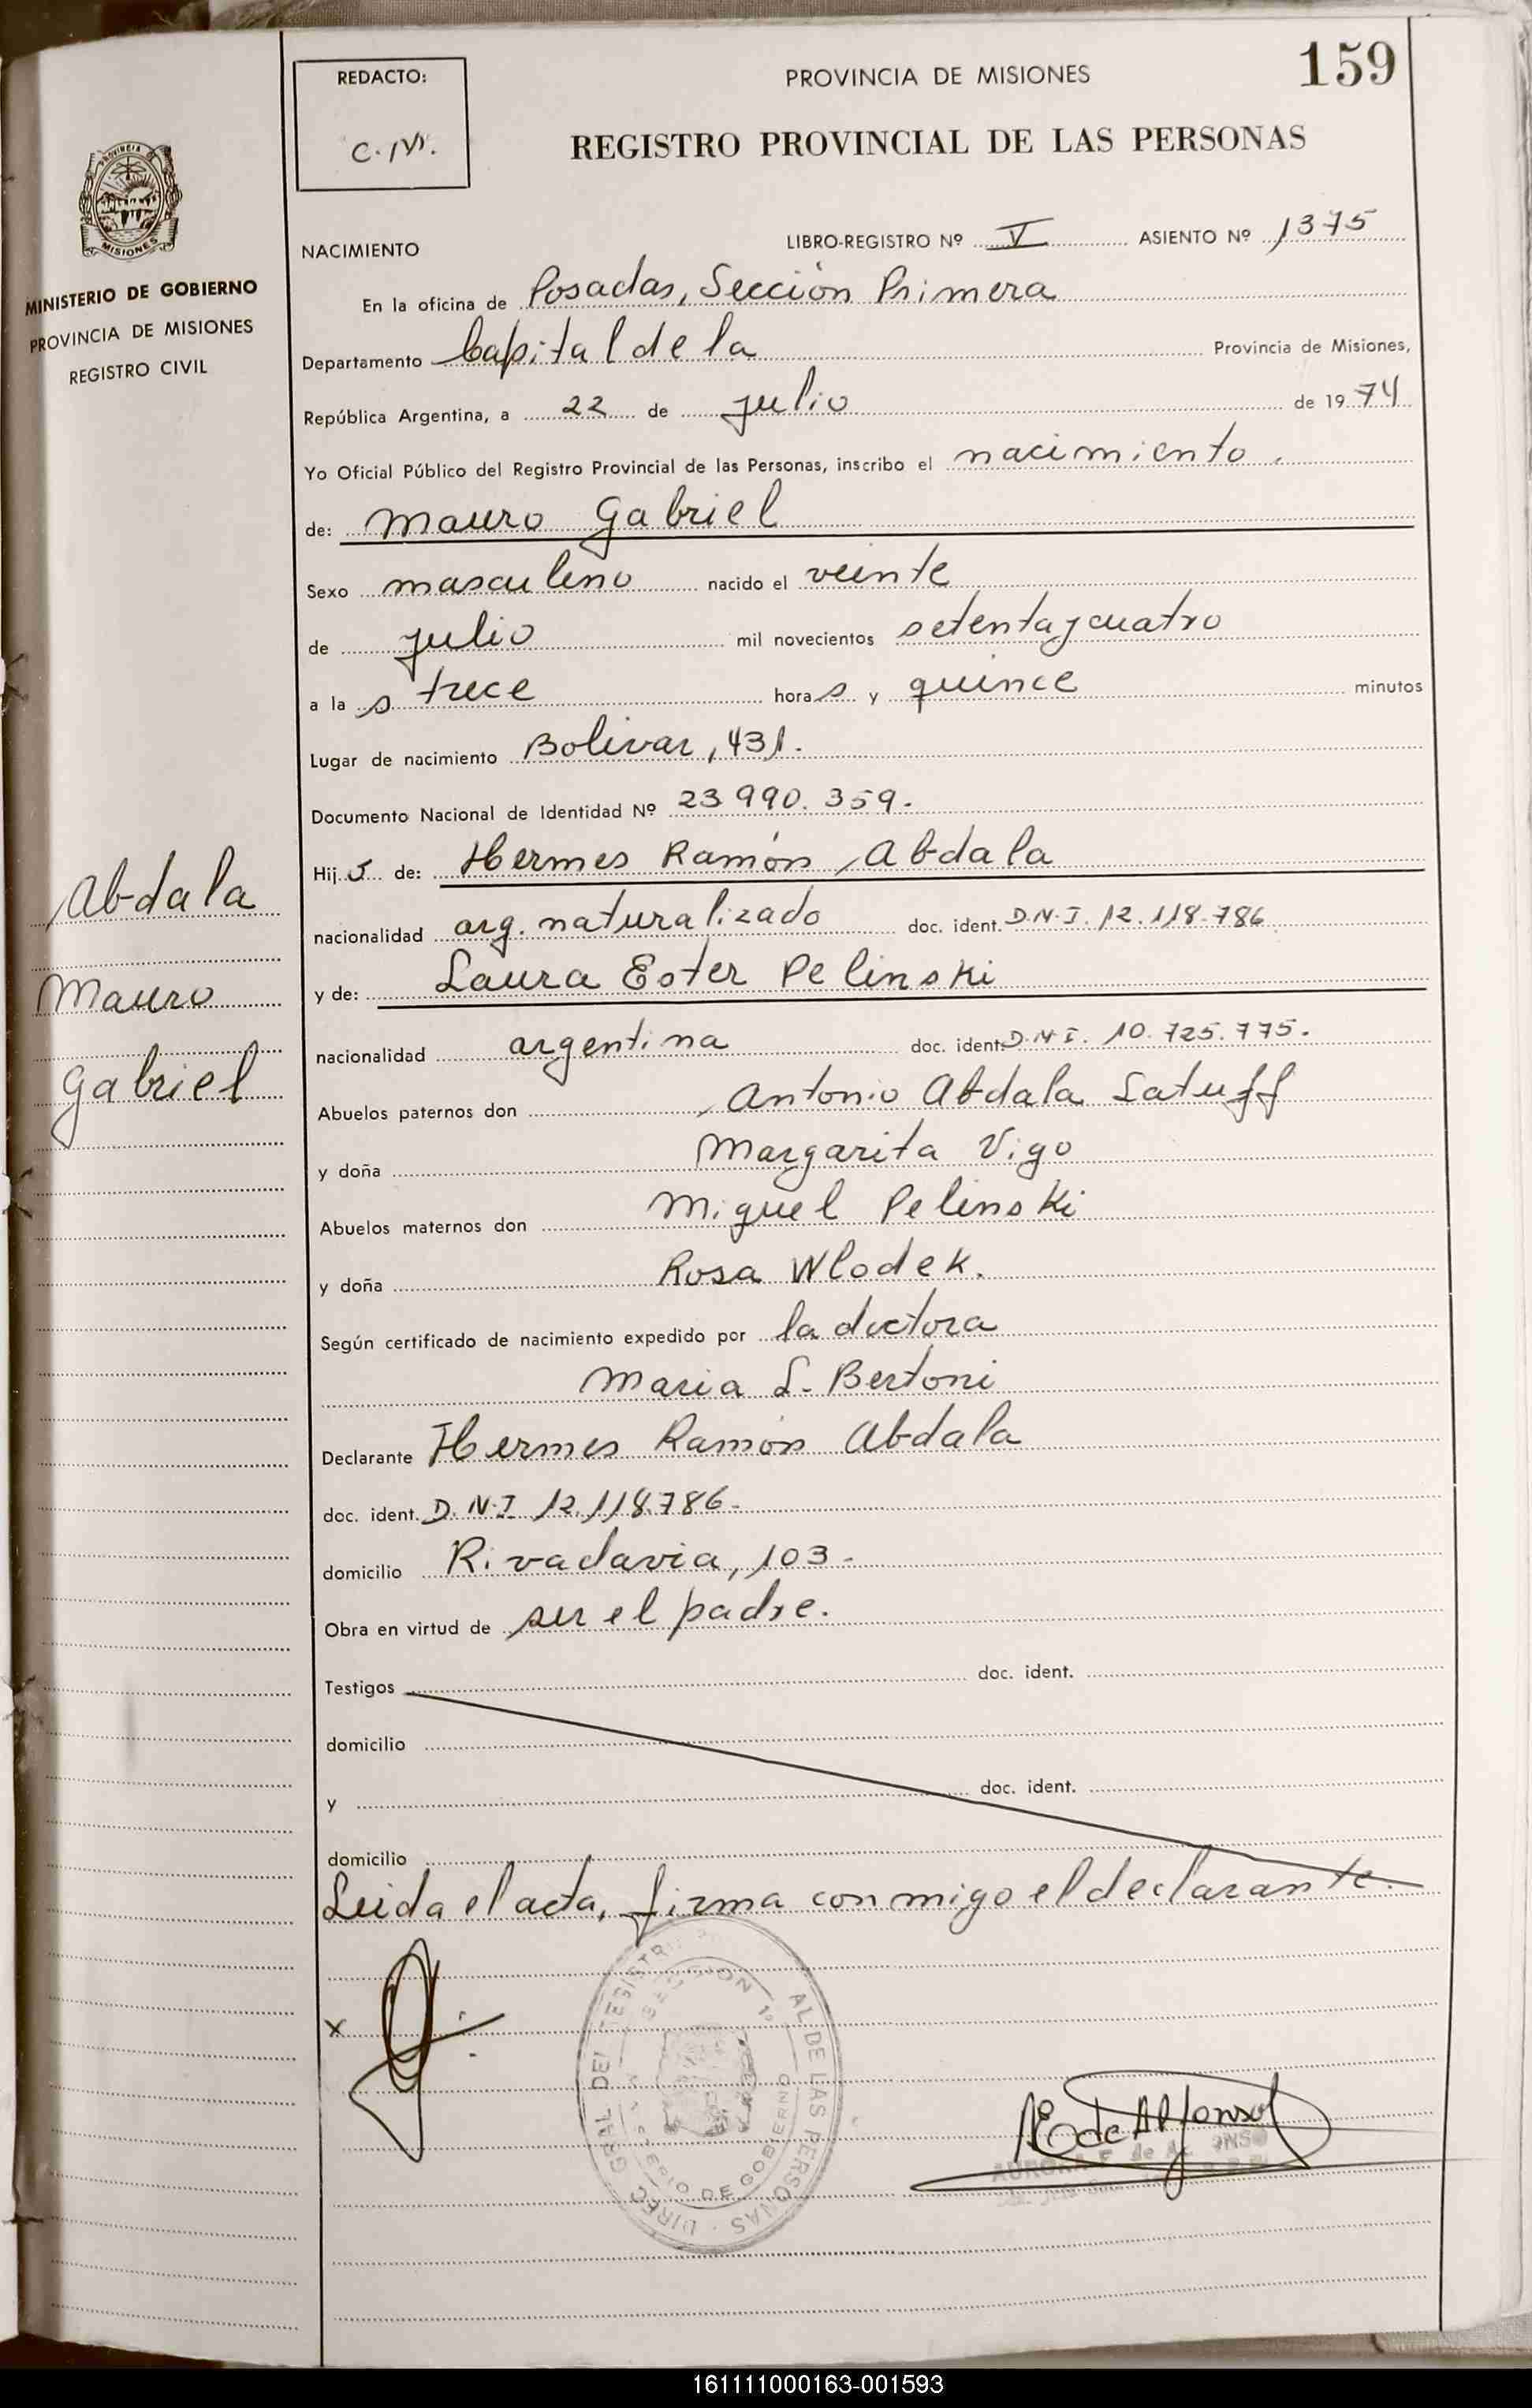 159
REDACTO:
C.M.
PROVINCIA DE MISIONES
REGISTRO PROVINCIAL DE LAS PERSONAS
PROVINCIA DE
MISIONES
MINISTERIO DE GOBIERNO
PROVINCIA DE MISIONES
REGISTRO CIVIL
NACIMIENTO
LIBRO-REGISTRO Nº V ASIENTO Nº 1375
En la oficina de Posadas, Sección Primera
Departamento Capital de la Provincia de Misiones,
República Argentina, a 22 de julio de 1974
Yo Oficial Público del Registro Provincial de las Personas, inscribo el nacimiento.
de: Mauro Gabriel
Sexo masculino nacido el veinte
de julio mil novecientos setenta y cuatro
a la s trece hora s y quince minutos
Lugar de nacimiento Bolivar, 431.
Documento Nacional de Identidad Nº 23.990.359.
Hij o de: Hermes Ramón Abdala
nacionalidad arg. naturalizado doc. ident. D.N.I. 12.118.786
y de: Laura Ester Pelinski
nacionalidad argentina doc. ident. D.N.I. 10.725.775.
Abuelos paternos don Antonio Abdala Satuff
y doña Margarita Vigo
Abuelos maternos don Miguel Pelinski
y doña Rosa Wlodek.
Según certificado de nacimiento expedido por la doctora
Maria L. Bertoni
Declarante Hermes Ramón Abdala
doc. ident. D.N.I 12.118.786-
domicilio Rivadavia, 103-
Obra en virtud de ser el padre.
Testigos doc. ident.
domicilio
y doc. ident.
domicilio
Leida el acta, firma conmigo el declarante.
Abdala
Mauro
Gabriel
x
AL DE LAS PERSONAS · DIREC. GRAL DEL REGISTR
SECCION 1º
MINISTERIO DE GOBIERNO
E de Alfonso
AURORA E. de
161111000163-001593